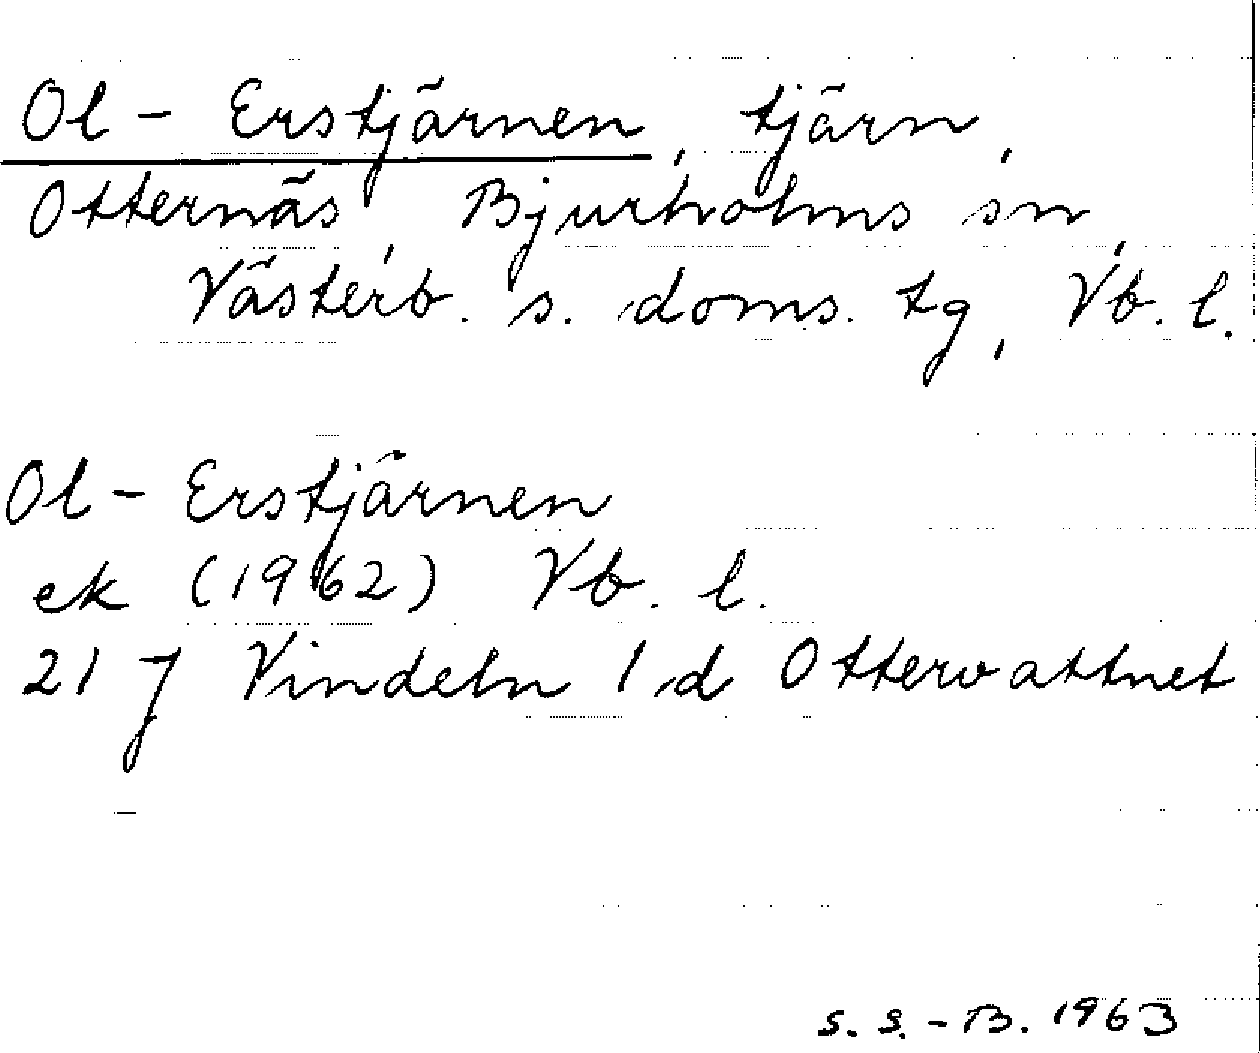 Ol - Erstjärnen, tjärn,
Otternäs, Bjurholms sn,
Västerb. s. doms. tg, Vb. l.
Ol - Erstjärnen
ek (1962) Vb. l.
21 J Vindeln 1 d Ottervattnet
S. S. - B. 1963